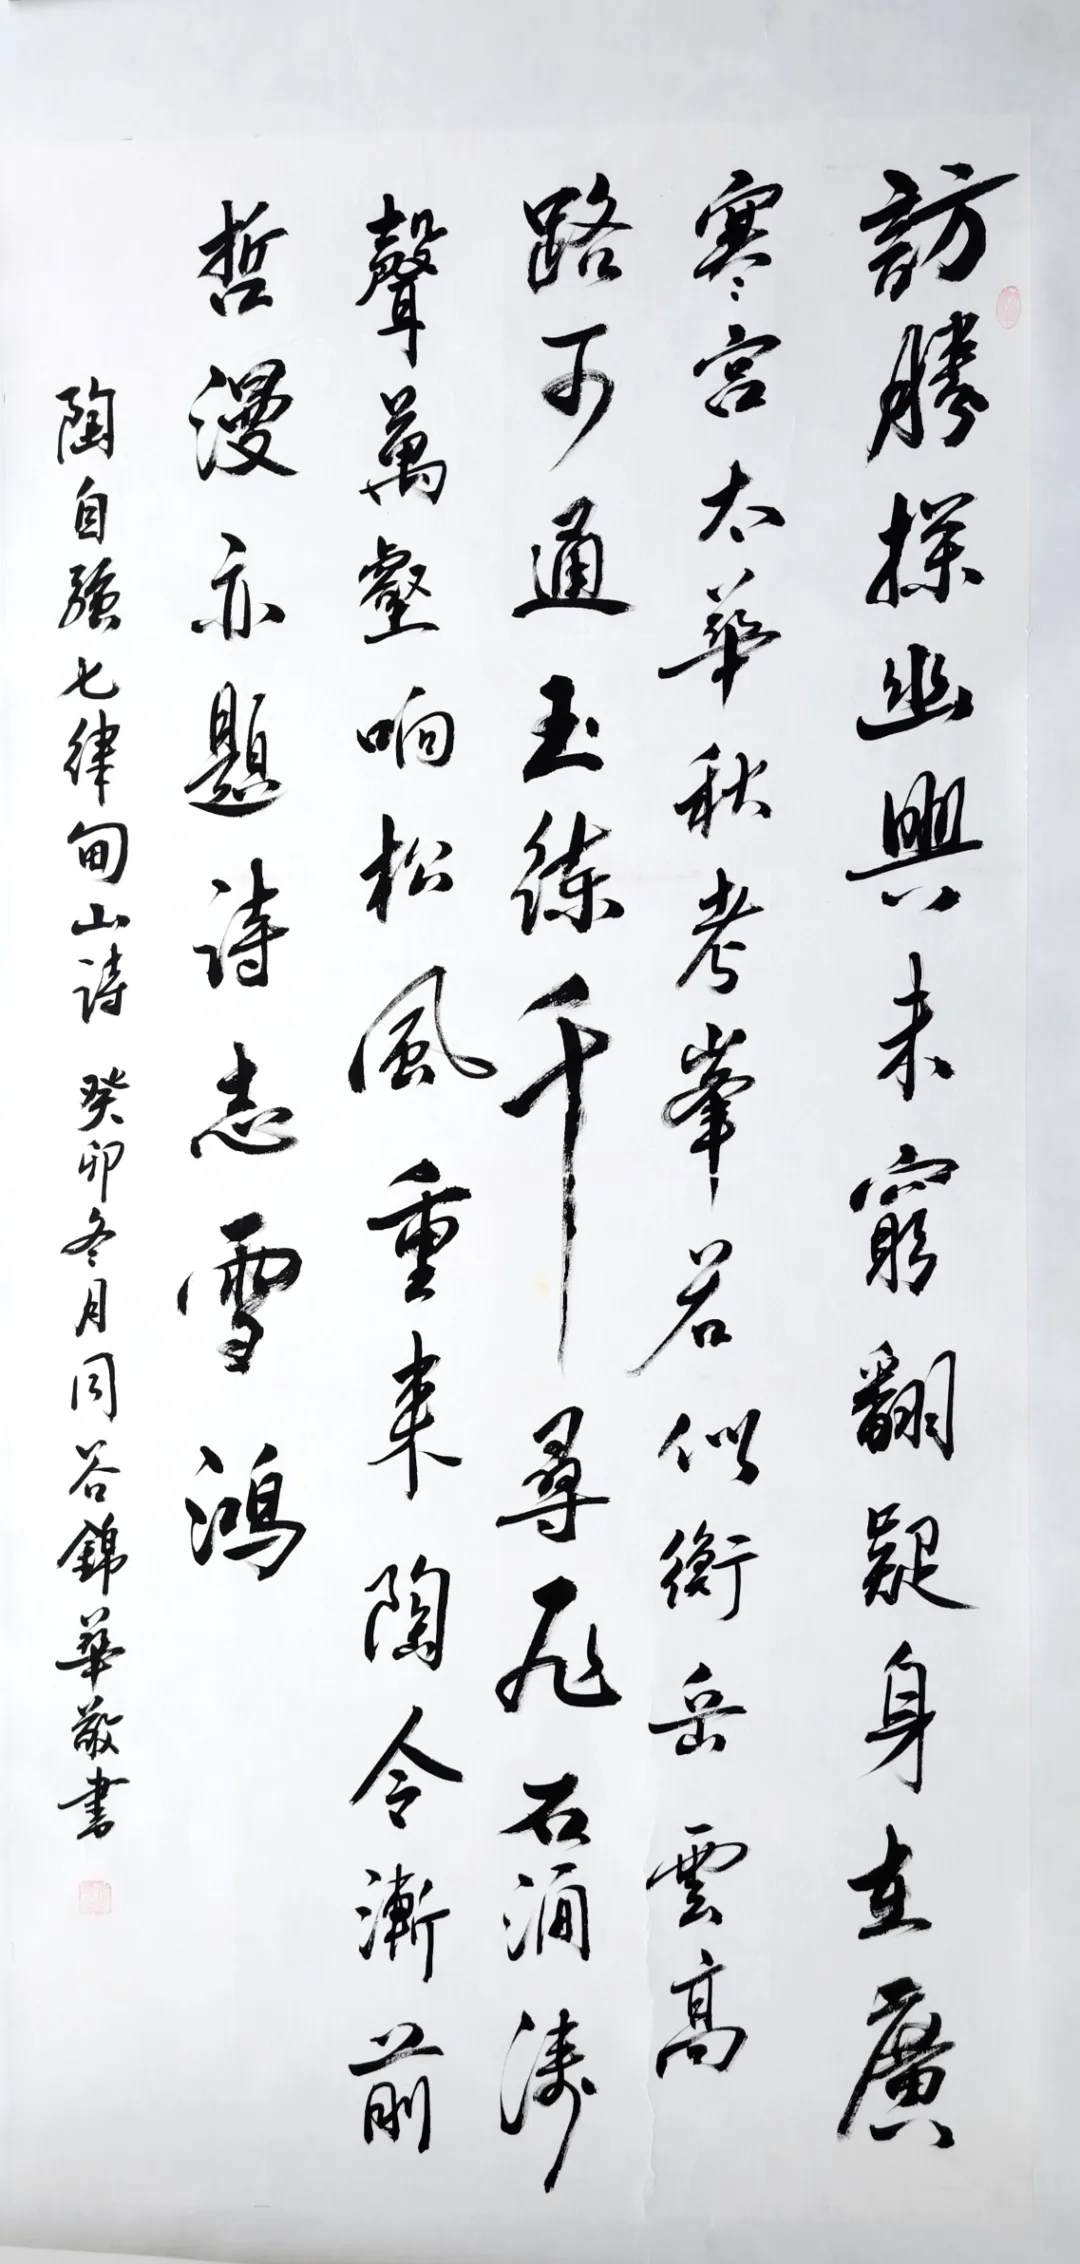 訪勝探幽興未窮翻疑身在廣
寒宮太華秋老峯若似衡岳雲高
路可通玉練千尋飛石涌濤
聲萬壑响松風重来陶令漸前
哲漫亦題詩志雪鴻
陶自強七律甸山詩 癸卯冬月同谷錦華敬書